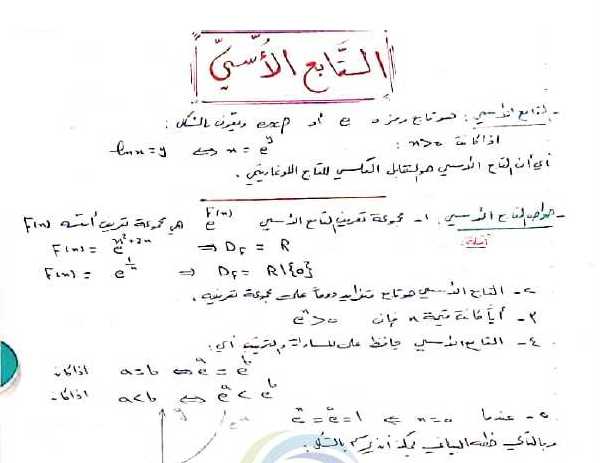 التَّابع الأُسّيّ
- التابع الأسي : هو تابع رمزه e أو exp ويعرف بالشكل :
اذا كانت x>0 : lnx=y ⇔ x=e^y
أي أن التابع الأسي هو التقابل العكسي للتابع اللوغاريتمي .
- خواص التابع الأسي : 1- مجموعة تعريف التابع الأسي e^F(x) هي مجموعة تعريف أسه F(x)
أمثلة
F(x) = e^x²+2x ⇒ D_F = R
F(x) = e^1/x ⇒ D_F = R\{0}
2- التابع الأسي هو تابع متزايد دوماً على مجموعة تعريفه .
3- أياً كانت قيمة x فإن e^x>0
4- التابع الأسي يحافظ على المساواة والترتيب أي :
اذا كان a=b ⇔ e^a = e^b
اذا كان a<b ⇔ e^a < e^b
5- عندما x=0 ⇒ e^x = e^0 = 1
وبالتالي خطه البياني يمكن أن يرسم بالشكل :
y
e^x